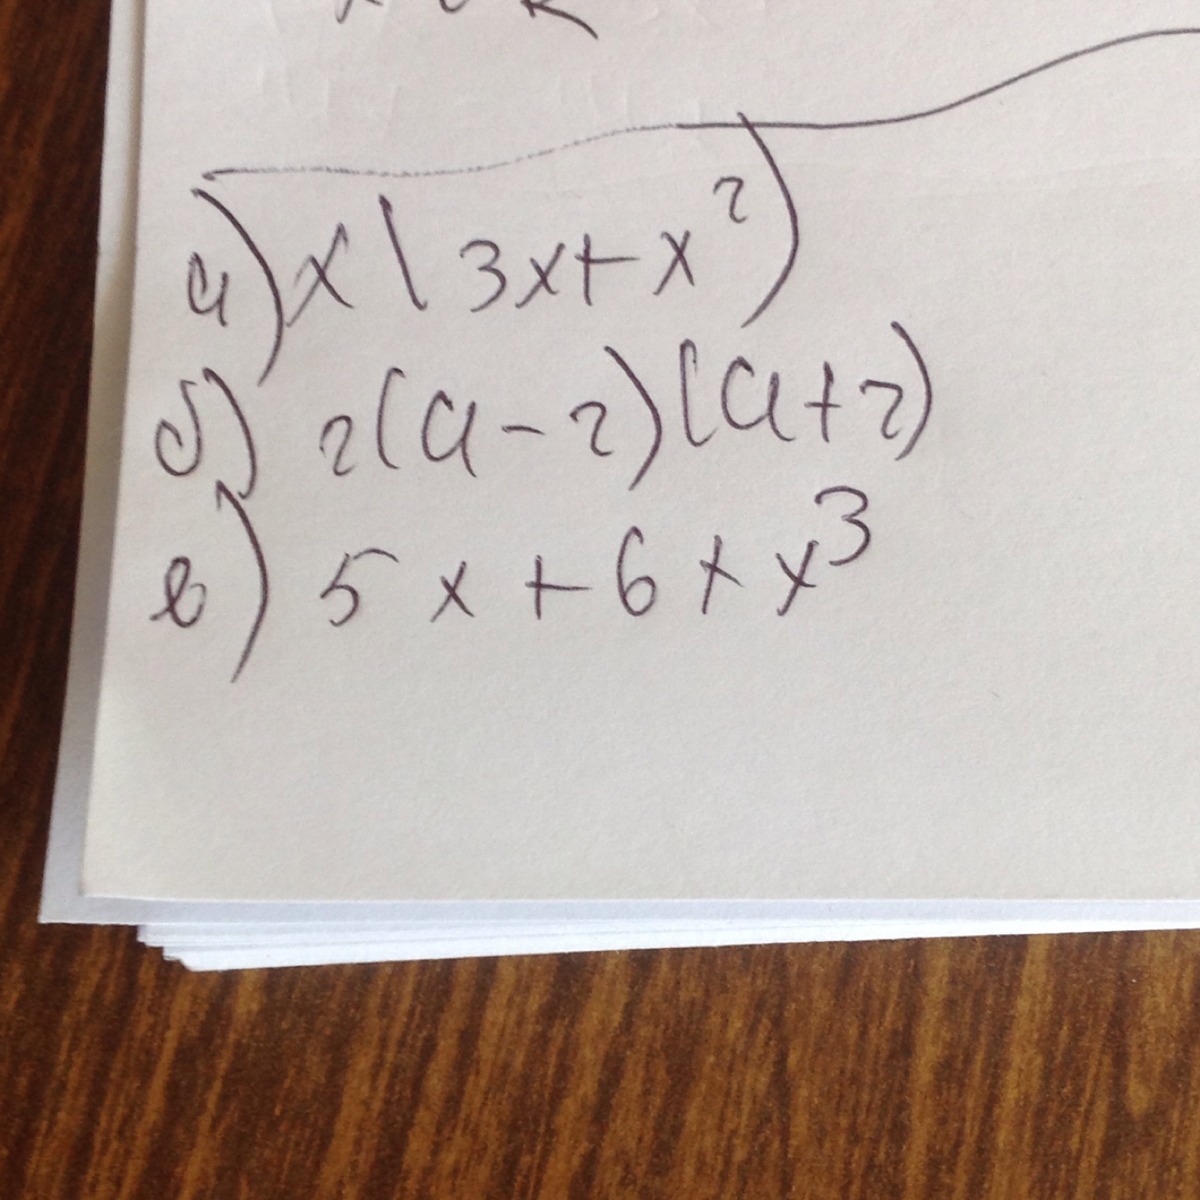 а) x(3x+x²)
б) 2(a-2)(a+2)
в) 5x+6+x³